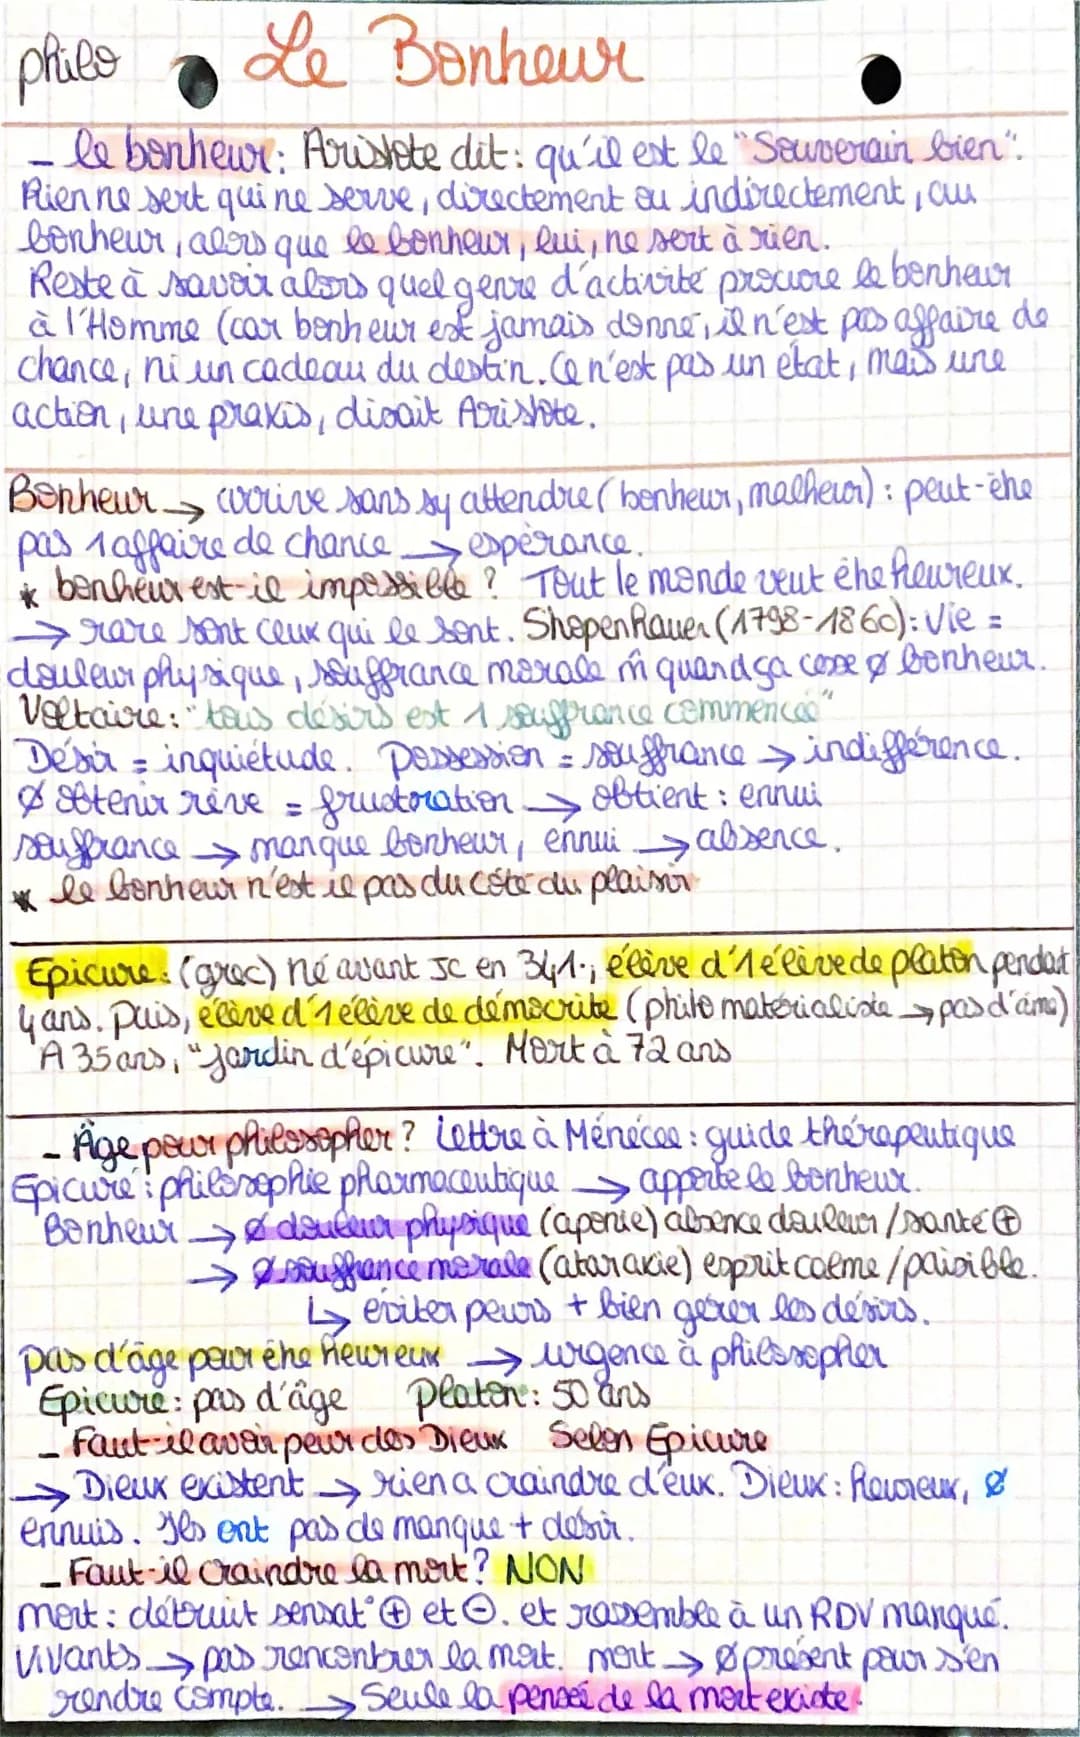 philo Le Bonheur
- le bonheur: Aristote dit: qu'il est le "Souverain bien".
Rien ne sert qui ne serve, directement ou indirectement, au
bonheur, alors que le bonheur, lui, ne sert à rien.
Reste à savoir alors quel genre d'activité procure le bonheur
à l'Homme (car bonheur est jamais donné, il n'est pas affaire de
chance, ni un cadeau du destin. Ce n'est pas un état, mais une
action, une praxis, disait Aristote.
Bonheur → arrive sans sy attendre (bonheur, malheur) : peut-être
pas 1 affaire de chance → espèrance.
* bonheur est-il impossible ? Tout le monde veut être heureux.
→ rare sont ceux qui le sont. Shopenhauer (1798-1860): Vie =
douleur physique, souffrance morale m̂ quand ça cesse ø bonheur.
Voltaire: "tous désirs est 1 souffrance commencée"
Désir = inquiétude. Possession = souffrance → indifférence.
ø obtenir rêve = frustration → obtient : ennui
souffrance → manque bonheur, ennui → absence.
* le bonheur n'est il pas du côté du plaisir
Epicure: (grec) Né avant JC en 341., élève d'1 élève de platon pendant
4 ans. Puis, élève d'1 élève de démocrite (philo matérialiste → pas d'âme)
A 35 ans, "jardin d'épicure". Mort à 72 ans
- Âge pour philosopher ? Lettre à Ménécée : guide thérapeutique
Epicure : philosophie pharmaceutique → apporte le bonheur.
Bonheur → ø douleur physique (aponie) absence douleur / santé ⊕
→ ø souffrance morale (ataraxie) esprit calme / paisible.
↳ éviter peurs + bien gérer les désirs.
pas d'âge pour être heureux → urgence à philosopher
Epicure : pas d'âge Platon : 50 ans
- Faut-il avoir peur des Dieux Selon Epicure
→ Dieux existent → rien a craindre d'eux. Dieux : heureux, ø
ennuis. Ils ont pas de manque + désir.
- Faut-il craindre la mort ? NON
mort : détruit sensat° ⊕ et ⊖. et rassemble à un RDV manqué.
Vivants → pas rencontrer la mort. mort → ø présent pour s'en
rendre compte. → Seule la pensée de la mort existe.